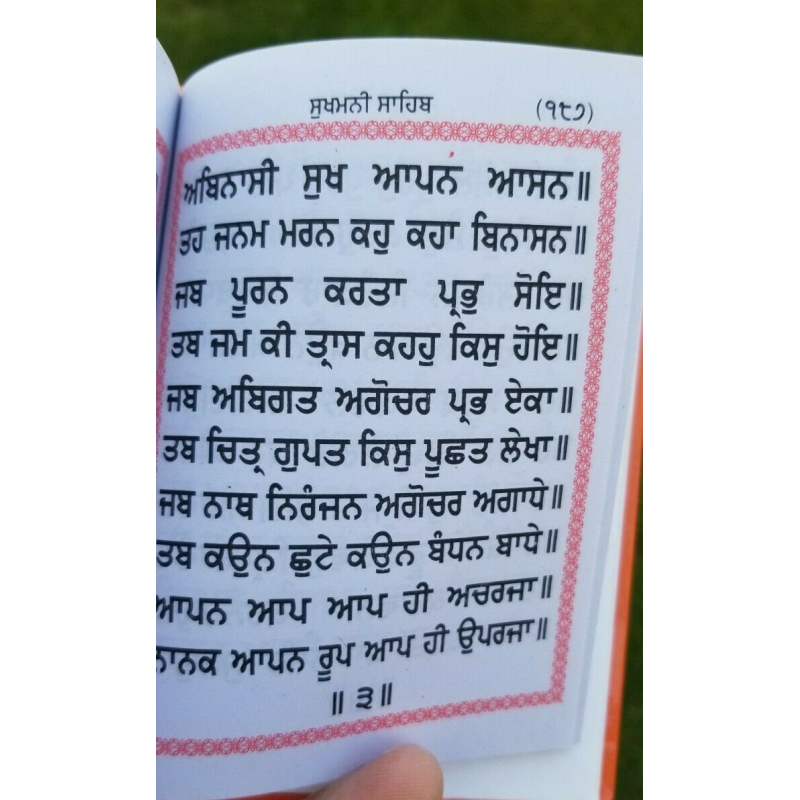 ਸੁਖਮਨੀ ਸਾਹਿਬ (੧੮੭)
ਅਬਿਨਾਸੀ ਸੁਖ ਆਪਨ ਆਸਨ॥
ਤਹ ਜਨਮ ਮਰਨ ਕਹੁ ਕਹਾ ਬਿਨਾਸਨ॥
ਜਬ ਪੂਰਨ ਕਰਤਾ ਪ੍ਰਭੁ ਸੋਇ॥
ਤਬ ਜਮ ਕੀ ਤ੍ਰਾਸ ਕਹਹੁ ਕਿਸੁ ਹੋਇ॥
ਜਬ ਅਬਿਗਤ ਅਗੋਚਰ ਪ੍ਰਭ ਏਕਾ॥
ਤਬ ਚਿਤ੍ਰ ਗੁਪਤ ਕਿਸੁ ਪੂਛਤ ਲੇਖਾ॥
ਜਬ ਨਾਥ ਨਿਰੰਜਨ ਅਗੋਚਰ ਅਗਾਧੇ॥
ਤਬ ਕਉਨ ਛੁਟੇ ਕਉਨ ਬੰਧਨ ਬਾਧੇ॥
ਆਪਨ ਆਪ ਆਪ ਹੀ ਅਚਰਜਾ॥
ਨਾਨਕ ਆਪਨ ਰੂਪ ਆਪ ਹੀ ਉਪਰਜਾ॥
॥੩॥